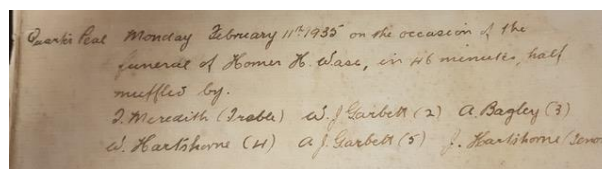 Quarter Peal Monday February 11th 1935 on the occasion of the
funeral of Homer H. Wase, in 46 minutes, half
muffled by.
J. Meredith (Treble) W. J. Garbett (2) A. Bagley (3)
W. Hartshorne (4) A J. Garbett (5) J. Hartshorne (Tenor